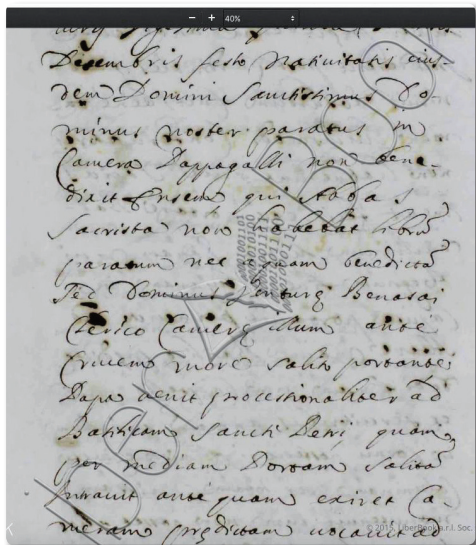 40%
Decembris festo Nativitatis eius-
dem Domini Sanctissimus Do
minus noster paratus in
Camera Pappagalli non bene-
dixit Ensem quia
Sacrista non habebat librũ
paratum nec aquam benedictã
sed Dominus Bonasai
Clerico Camerę illum ante
Crucem more solito portante
Papa venit processionaliter ad
Basilicam Sancti Petri quam
per mediam Portam solitã
intravit ante quam exiret Ca-
meram prędictam vocavit ad
© 2015, LiberBook s.r.l. Soc